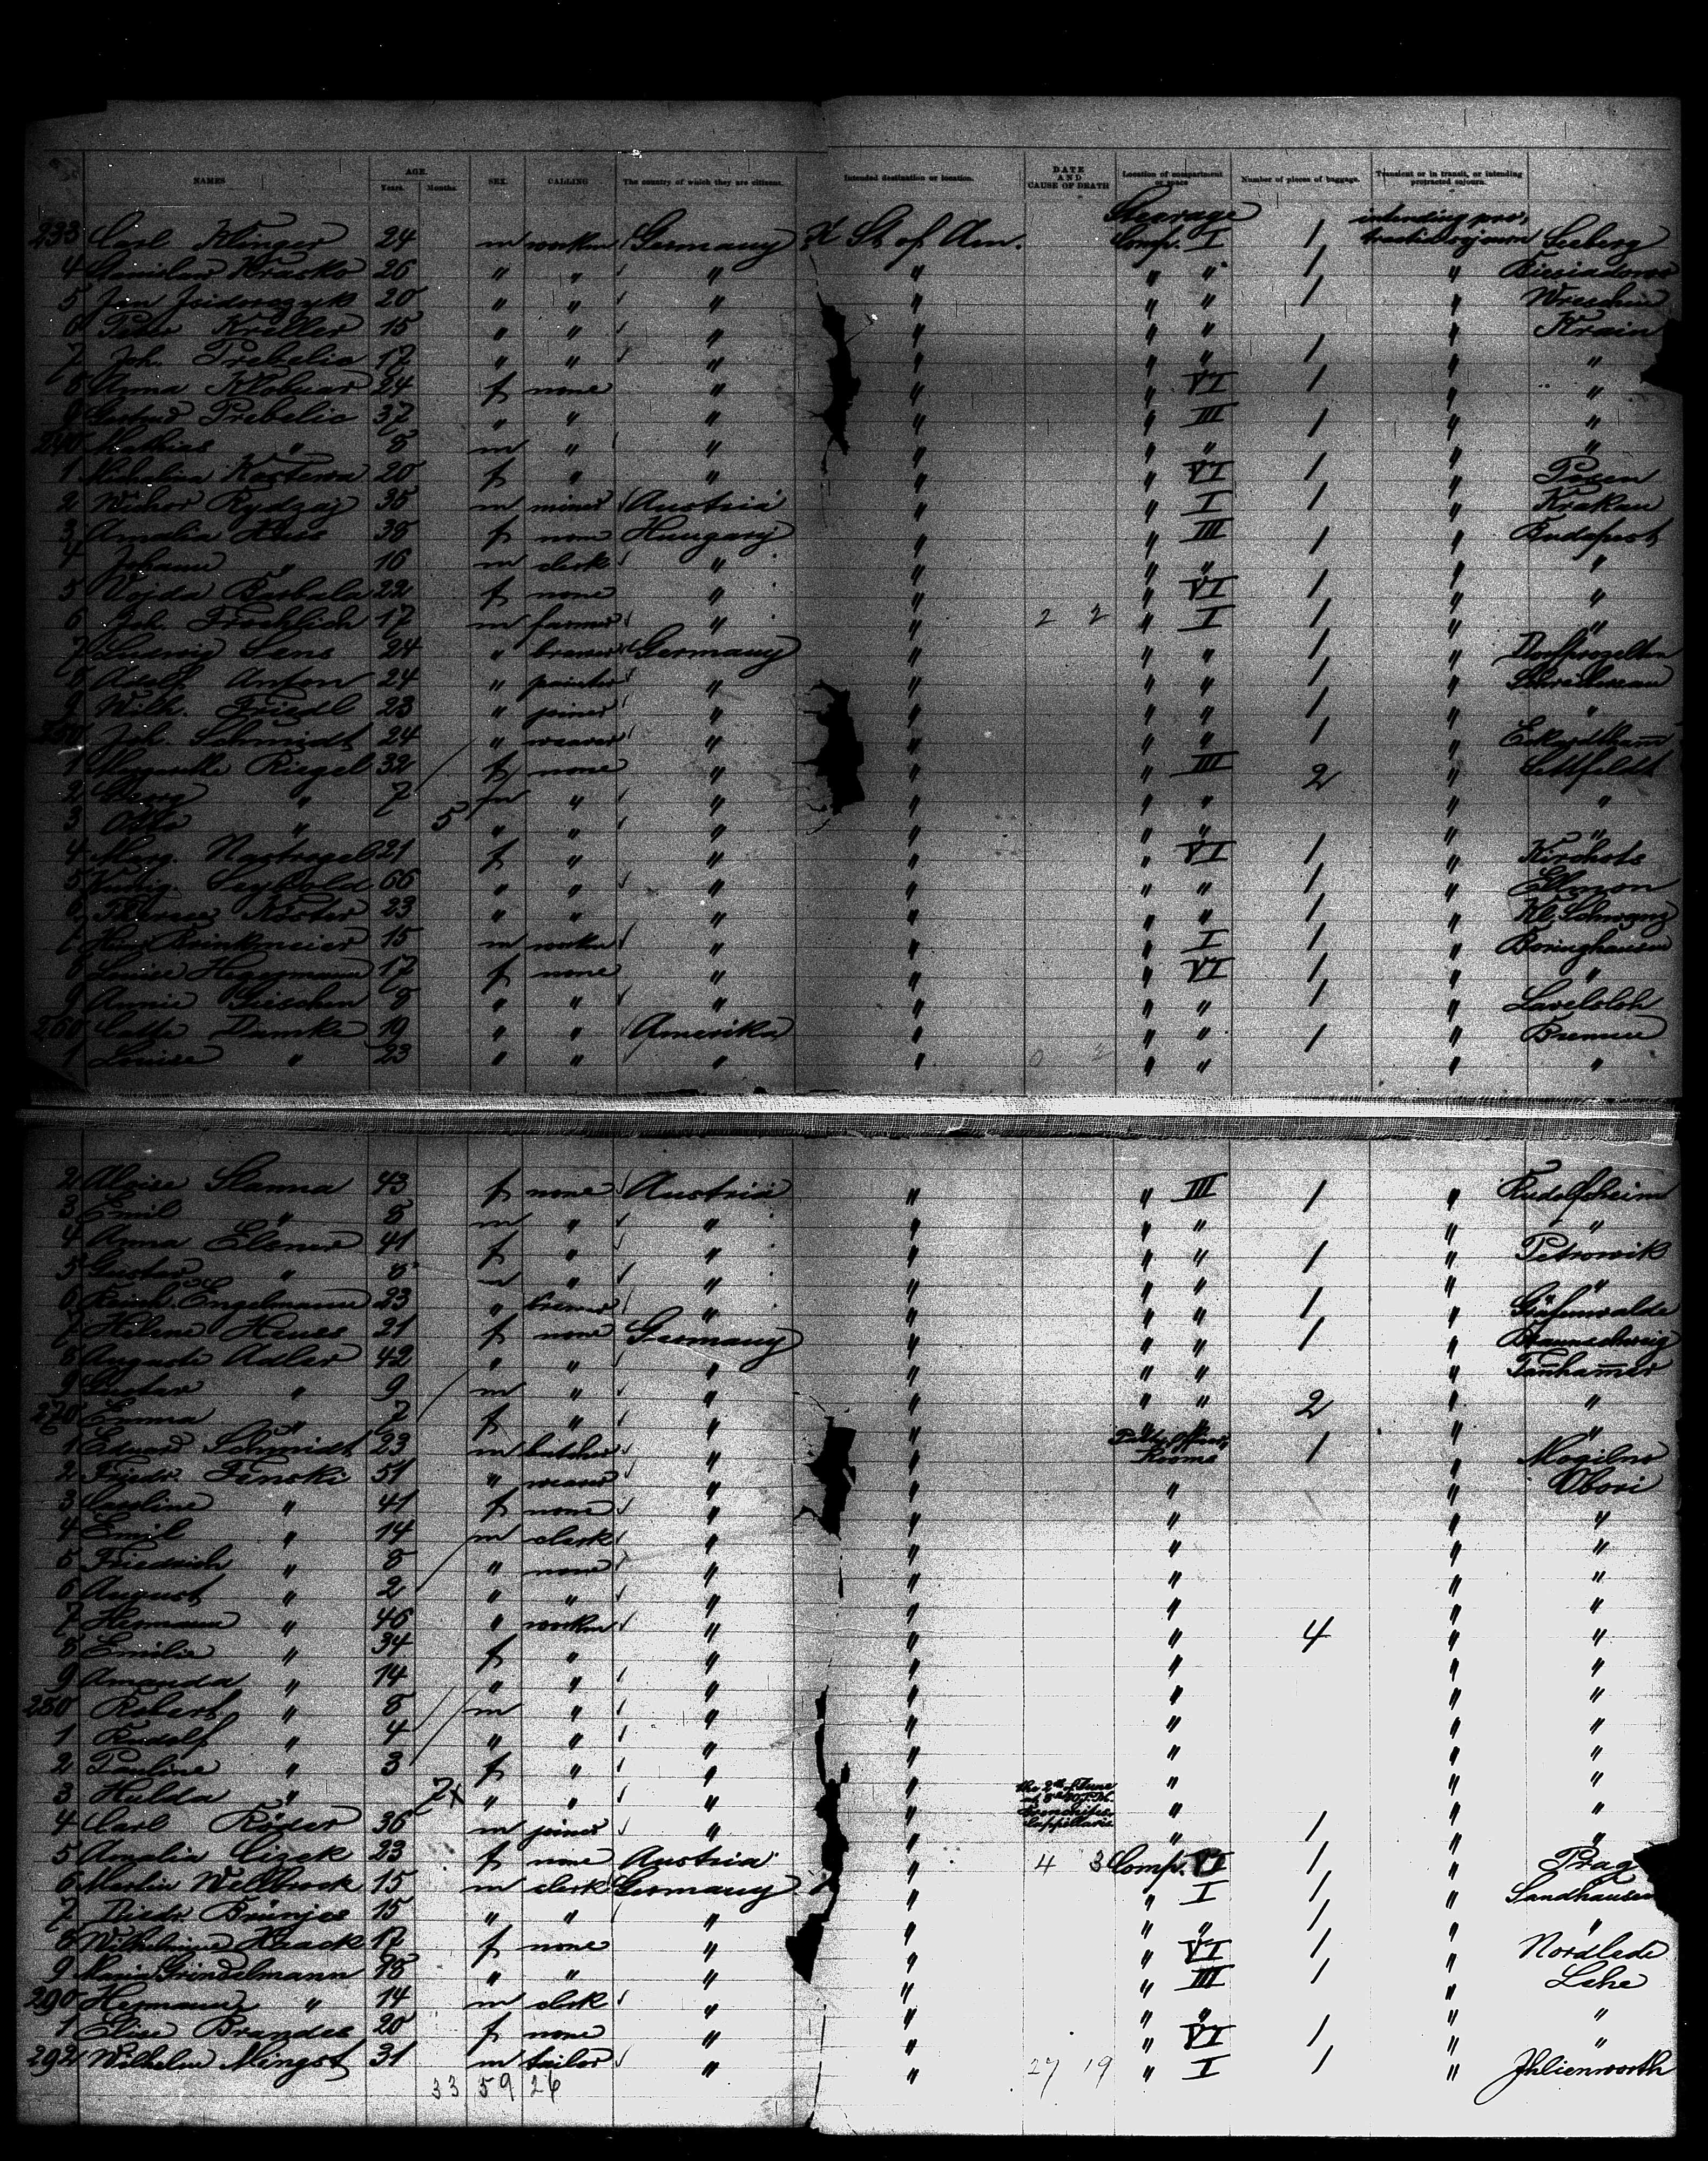 NAMES AGE. Years. Months. SEX. CALLING The country of which they are citizens. Intended destination or location. DATE AND CAUSE OF DEATH Location of compartment or space Number of pieces of baggage. Transient or in transit, or intending protracted sojourn.
Stearage intending pro-
233 Carl Klinger 24 m worker Germany St of Am. Comp. I 1 tracted sojourn Seeberg
4 Stanislaw Krasko 26 " " " " " " 1 "
5 Jan 20 " " " " " " 1 " Wreschen
6 Peter Kreller 15 " " " " " " " Krain
7 Joh. Prebelic 17 " " " " " " 1 " "
8 Anna Klobucar 24 f none " " " VI 1 " "
9 Gertrud Prebelic 37 " " " " " III 1 " "
240 Mathias " 8 m " " " " " " "
1 Michalina Kostewa 20 f " " " " VI 1 " Posen
2 Rydzaj 35 m miner Austria " " I 1 " Krakau
3 Amalia Huss 38 f none Hungary " " III 1 " Budapest
4 Johann " 16 m clerk " " " " " "
5 Vojda Barbala 22 f none " " " VI 1 " "
6 Joh. Froehlich 17 m farmer " " 2 2 " I 1 " "
7 Ludwig Sens 24 " brewer Germany " " " 1 " Dorfprozelten
8 Adolf Anton 24 " painter " " " " 1 "
9 Wilh. Friedl 23 " joiner " " " " 1 " "
250 Joh. Schmidt 24 " weaver " " " " 1 "
1 Margarethe Riegel 32 f none " " " III 2 "
2 Georg " 7 m " " " " " " "
3 Otto " 5 " " " " " " " "
4 Marg. Nastvogel 21 f " " " " VI 1 "
5 Kunig. Seybold 66 " " " " " " 1 " Ellmon
6 Therese Köster 23 " " " " " " 1 "
7 Herm. Brinkmeier 15 m worker " " " I 1 " Boringhausen
8 Louise Heggemann 17 f none " " " VI 1 " "
9 Annie Gieschen 8 " " " " " " 1 " Lavelsloh
260 Damke 19 " " Amerika " " " 1 " Bremen
1 Louise " 23 " " " " 0 2 " " " "
2 Aloise Slamna 43 f none Austria " " III 1 " Rudolfsheim
3 Emil " 8 m " " " " " " "
4 Anna Elsner 41 f " " " " " 1 " Petrowik
5 Gustav " 8 m " " " " " " "
6 Reinh. Engelmann 23 " " " " " 1 " Gräfenwalde
7 Helene Heues 21 f none Germany " " " 1 " Braunschweig
8 Auguste Adler 42 " " " " " " " Tanhamer
9 Gustav " 9 m " " " " " 2 " "
270 Emma " 7 f " " " " " " "
1 Eduard Schmidt 23 m butcher " " Rooms 1 " Mogilno
2 Friedr. Finski 51 " weaver " " " " Obori
3 Caroline " 41 f none " " " " "
4 Emil " 14 m clerk " " " " "
5 Friedrich " 8 " none " " " " "
6 August " 2 " " " " " " "
7 Hermann " 46 " worker " " " 4 " "
8 Emilie " 34 f " " " " " "
9 Amanda " 14 " " " " " " "
280 Robert " 8 m " " " " " "
1 Rudolf " 4 " " " " " " "
2 Pauline " 3 f " " " " " "
3 Hulda " 7x " " " " the 2th of June " " "
4 Carl Röder 36 m joiner " " " 1 " "
5 Amalia Cizek 23 f none Austria " 4 3 Comp. VI 1 " Prag
6 Martin Wellbrock 15 m clerk Germany " " I 1 " Sandhausen
7 Diedr. Brünjes 15 " " " " " " 1 " "
8 Wilhelmine Knack 17 f none " " " VI 1 " Nordleda
9 Maria Grindelmann 18 " " " " " III 1 " Lehe
290 Hermann " 14 m clerk " " " " " "
1 Elise Brandes 20 f none " " " VI 1 " "
292 Wilhelm Mingst 31 m tailor " " 27 19 " I 1 " Jhlienworth
33 59 26